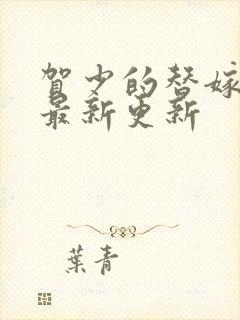 贺少的替嫁
最新更新
葉青